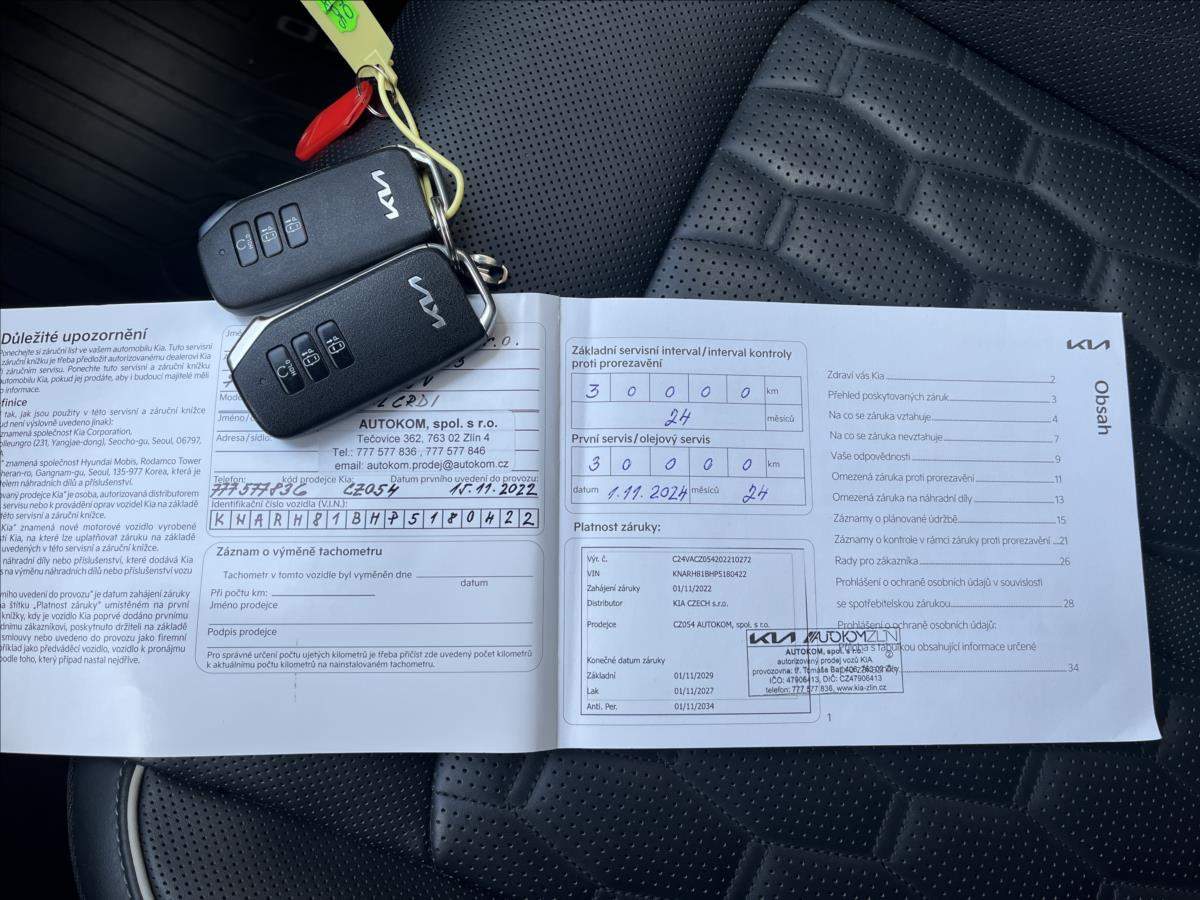 KIA
KIA
Důležité upozornění
Ponechejte si záruční list ve vašem automobilu Kia. Tuto servisní
záruční knížku je třeba předložit autorizovanému dealerovi Kia
záručním servisu. Ponechte tuto servisní a záruční knížku
automobilu Kia, pokud jej prodáte, aby i budoucí majitelé měli
informace.
tak, jak jsou použity v této servisní a záruční knížce
ud není výslovně uvedeno jinak):
znamená společnost Kia Corporation,
(231, Yangjae-dong), Seocho-gu, Seoul, 06797,
znamená společnost Hyundai Mobis, Rodamco Tower
Gangnam-gu, Seoul, 135-977 Korea, která je
telem náhradních dílů a příslušenství.
ovaný prodejce Kia" je osoba, autorizovaná distributorem
servisu nebo k provádění oprav vozidel Kia na základě
této servisní a záruční knížce.
Kia" znamená nové motorové vozidlo vyrobené
stí Kia, na které lze uplatňovat záruku na základě
uvedených v této servisní a záruční knížce.
náhradní dílů nebo příslušenství, které dodává Kia
s na výměnu náhradních dílů nebo příslušenství vozu
ního uvedení do provozu" je datum zahájení záruky
a štítku „Platnost záruky" umístěném na první
knížky, kdy je vozidlo Kia poprvé dodáno prvnímu
dnímu zákazníkovi, poskytnuto držiteli na základě
smlouvy nebo uvedeno do provozu jako firemní
příklad jako předváděcí vozidlo, vozidlo k pronájmu
podle toho, který případ nastal nejdříve.
r.o.
CRDI
Adresa/sídlo:
AUTOKOM, spol. s r.o.
Tečovice 362, 763 02 Zlín 4
Tel.: 777 577 836 , 777 577 846
email: autokom.prodej@autokom.cz
Telefon: kód prodejce Kia: Datum prvního uvedení do provozu:
777577836 CZ054 15.11.2022
Identifikační číslo vozidla (V.I.N.):
KNARH81BHP5180422
Záznam o výměně tachometru
Tachometr v tomto vozidle byl vyměněn dne
datum
Při počtu km:
Jméno prodejce
Podpis prodejce
Pro správné určení počtu ujetých kilometrů je třeba přičíst zde uvedený počet kilometrů
k aktuálnímu počtu kilometrů na nainstalovaném tachometru.
Základní servisní interval/interval kontroly
proti prorezavění
3 0 0 0 0 km
24 měsíců
První servis/olejový servis
3 0 0 0 0 km
datum 1.11.2024 měsíců 24
Platnost záruky:
Výr. č. C24VACZ054202210272
VIN KNARH81BHP5180422
Zahájení záruky 01/11/2022
Distributor KIA CZECH s.r.o.
Prodejce CZ054 AUTOKOM, spol. s r.o.
Konečné datum záruky
Základní 01/11/2029
Lak 01/11/2027
Anti. Per. 01/11/2034
KIA AUTOKOM ZLÍN
AUTOKOM, spol. s r.o.
autorizovaný prodej vozů KIA
provozovna: tř. Tomáše Bati
IČO: 47906413, DIČ: CZ47906413
telefon: 777 577 836, www.kia-zlin.cz
KIA
Obsah
Zdraví vás Kia 2
Přehled poskytovaných záruk 3
Na co se záruka vztahuje 4
Na co se záruka nevztahuje 7
Vaše odpovědnosti 9
Omezená záruka proti prorezavění 11
Omezená záruka na náhradní díly 13
Záznamy o plánované údržbě 15
Záznamy o kontrole v rámci záruky proti prorezavění 21
Rady pro zákazníka 26
Prohlášení o ochraně osobních údajů v souvislosti
se spotřebitelskou zárukou 28
Prohlášení o ochraně osobních údajů:
Příloha s tabulkou obsahující informace určené
34
1